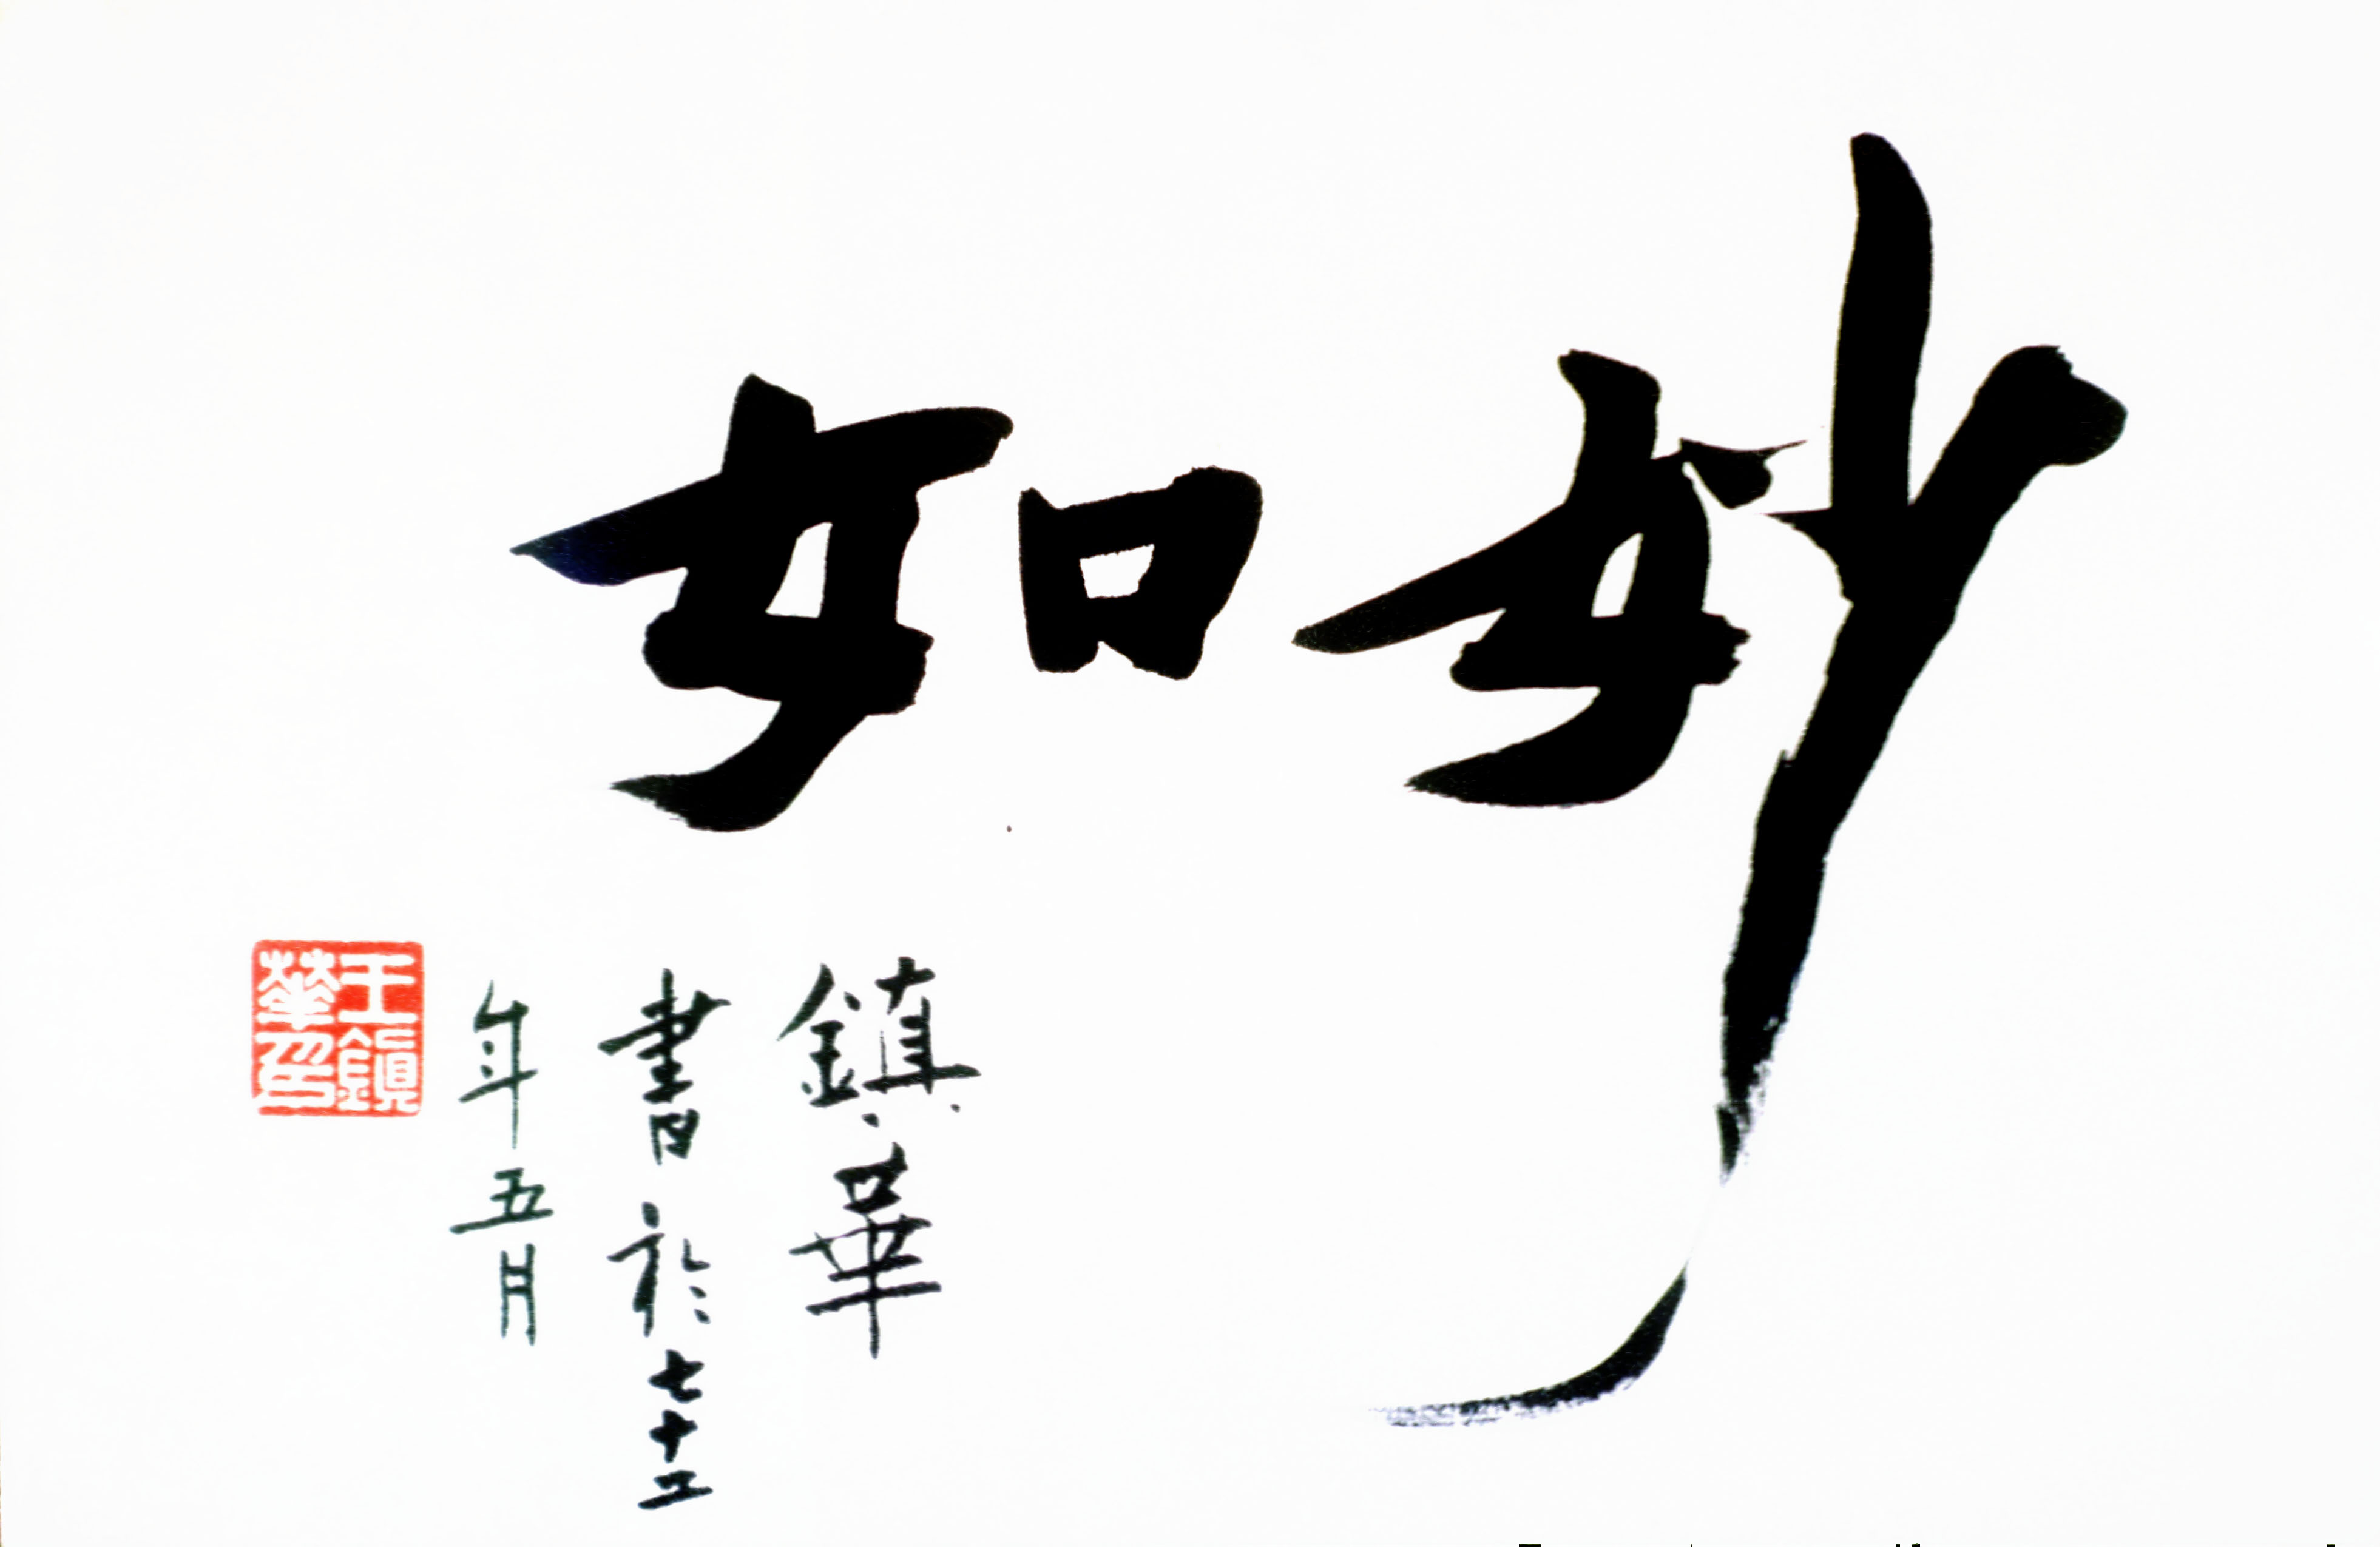 妙如
鎮華
書於七十二
年五月
王鎮
華印